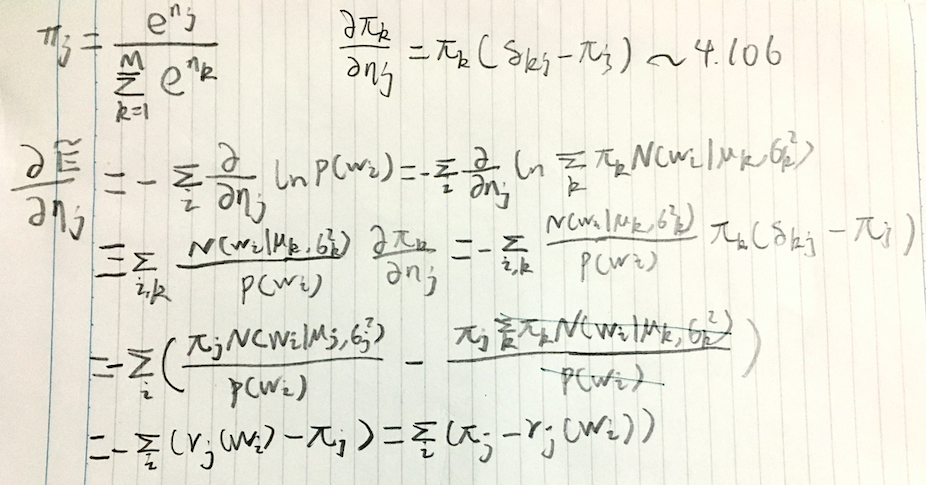 π_j = e^{η_j} / Σ_{k=1}^{M} e^{η_k}    ∂π_k/∂η_j = π_k(δ_{kj} - π_j) ~ 4.106
∂Ẽ/∂η_j = - Σ_i ∂/∂η_j ln p(w_i) = - Σ_i ∂/∂η_j ln Σ_k π_k N(w_i|μ_k, σ_k^2)
= - Σ_{i,k} N(w_i|μ_k, σ_k^2) / p(w_i) ∂π_k/∂η_j = - Σ_{i,k} N(w_i|μ_k, σ_k^2) / p(w_i) π_k(δ_{kj} - π_j)
= - Σ_i ( π_j N(w_i|μ_j, σ_j^2) / p(w_i) - π_j Σ_k π_k N(w_i|μ_k, σ_k^2) / p(w_i) )
= - Σ_i (γ_j(w_i) - π_j) = Σ_i (π_j - γ_j(w_i))